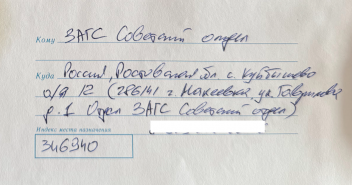 Кому ЗАГС Советский отдел
Куда Россия, Ростовская обл. с. Куйбышево
а/я 12 (286141 г. Макеевка ул. Гаврилова
д. 1 Отдел ЗАГС Советский отдел)
Индекс места назначения
346940